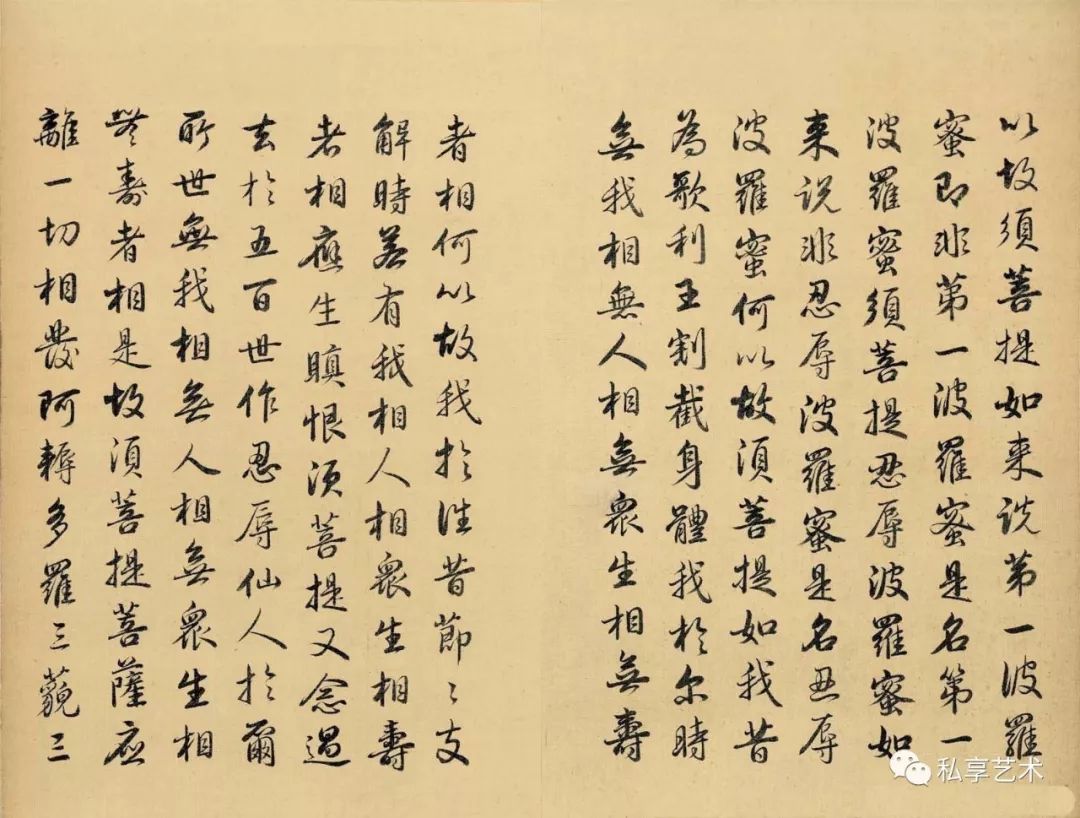 以故須菩提如来説苐一波羅
蜜即非苐一波羅蜜是名第一
波羅蜜須菩提忍辱波羅蜜如
来説非忍辱波羅蜜是名忍辱
波羅蜜何以故須菩提如我昔
為歌利王割截身體我於尔時
無我相無人相無衆生相無壽
者相何以故我於往昔節〻支
解時若有我相人相衆生相壽
者相應生瞋恨須菩提又念過
去於五百世作忍辱仙人於爾
所世無我相無人相無衆生相
無壽者相是故須菩提菩薩應
離一切相發阿耨多羅三藐三
私享艺术